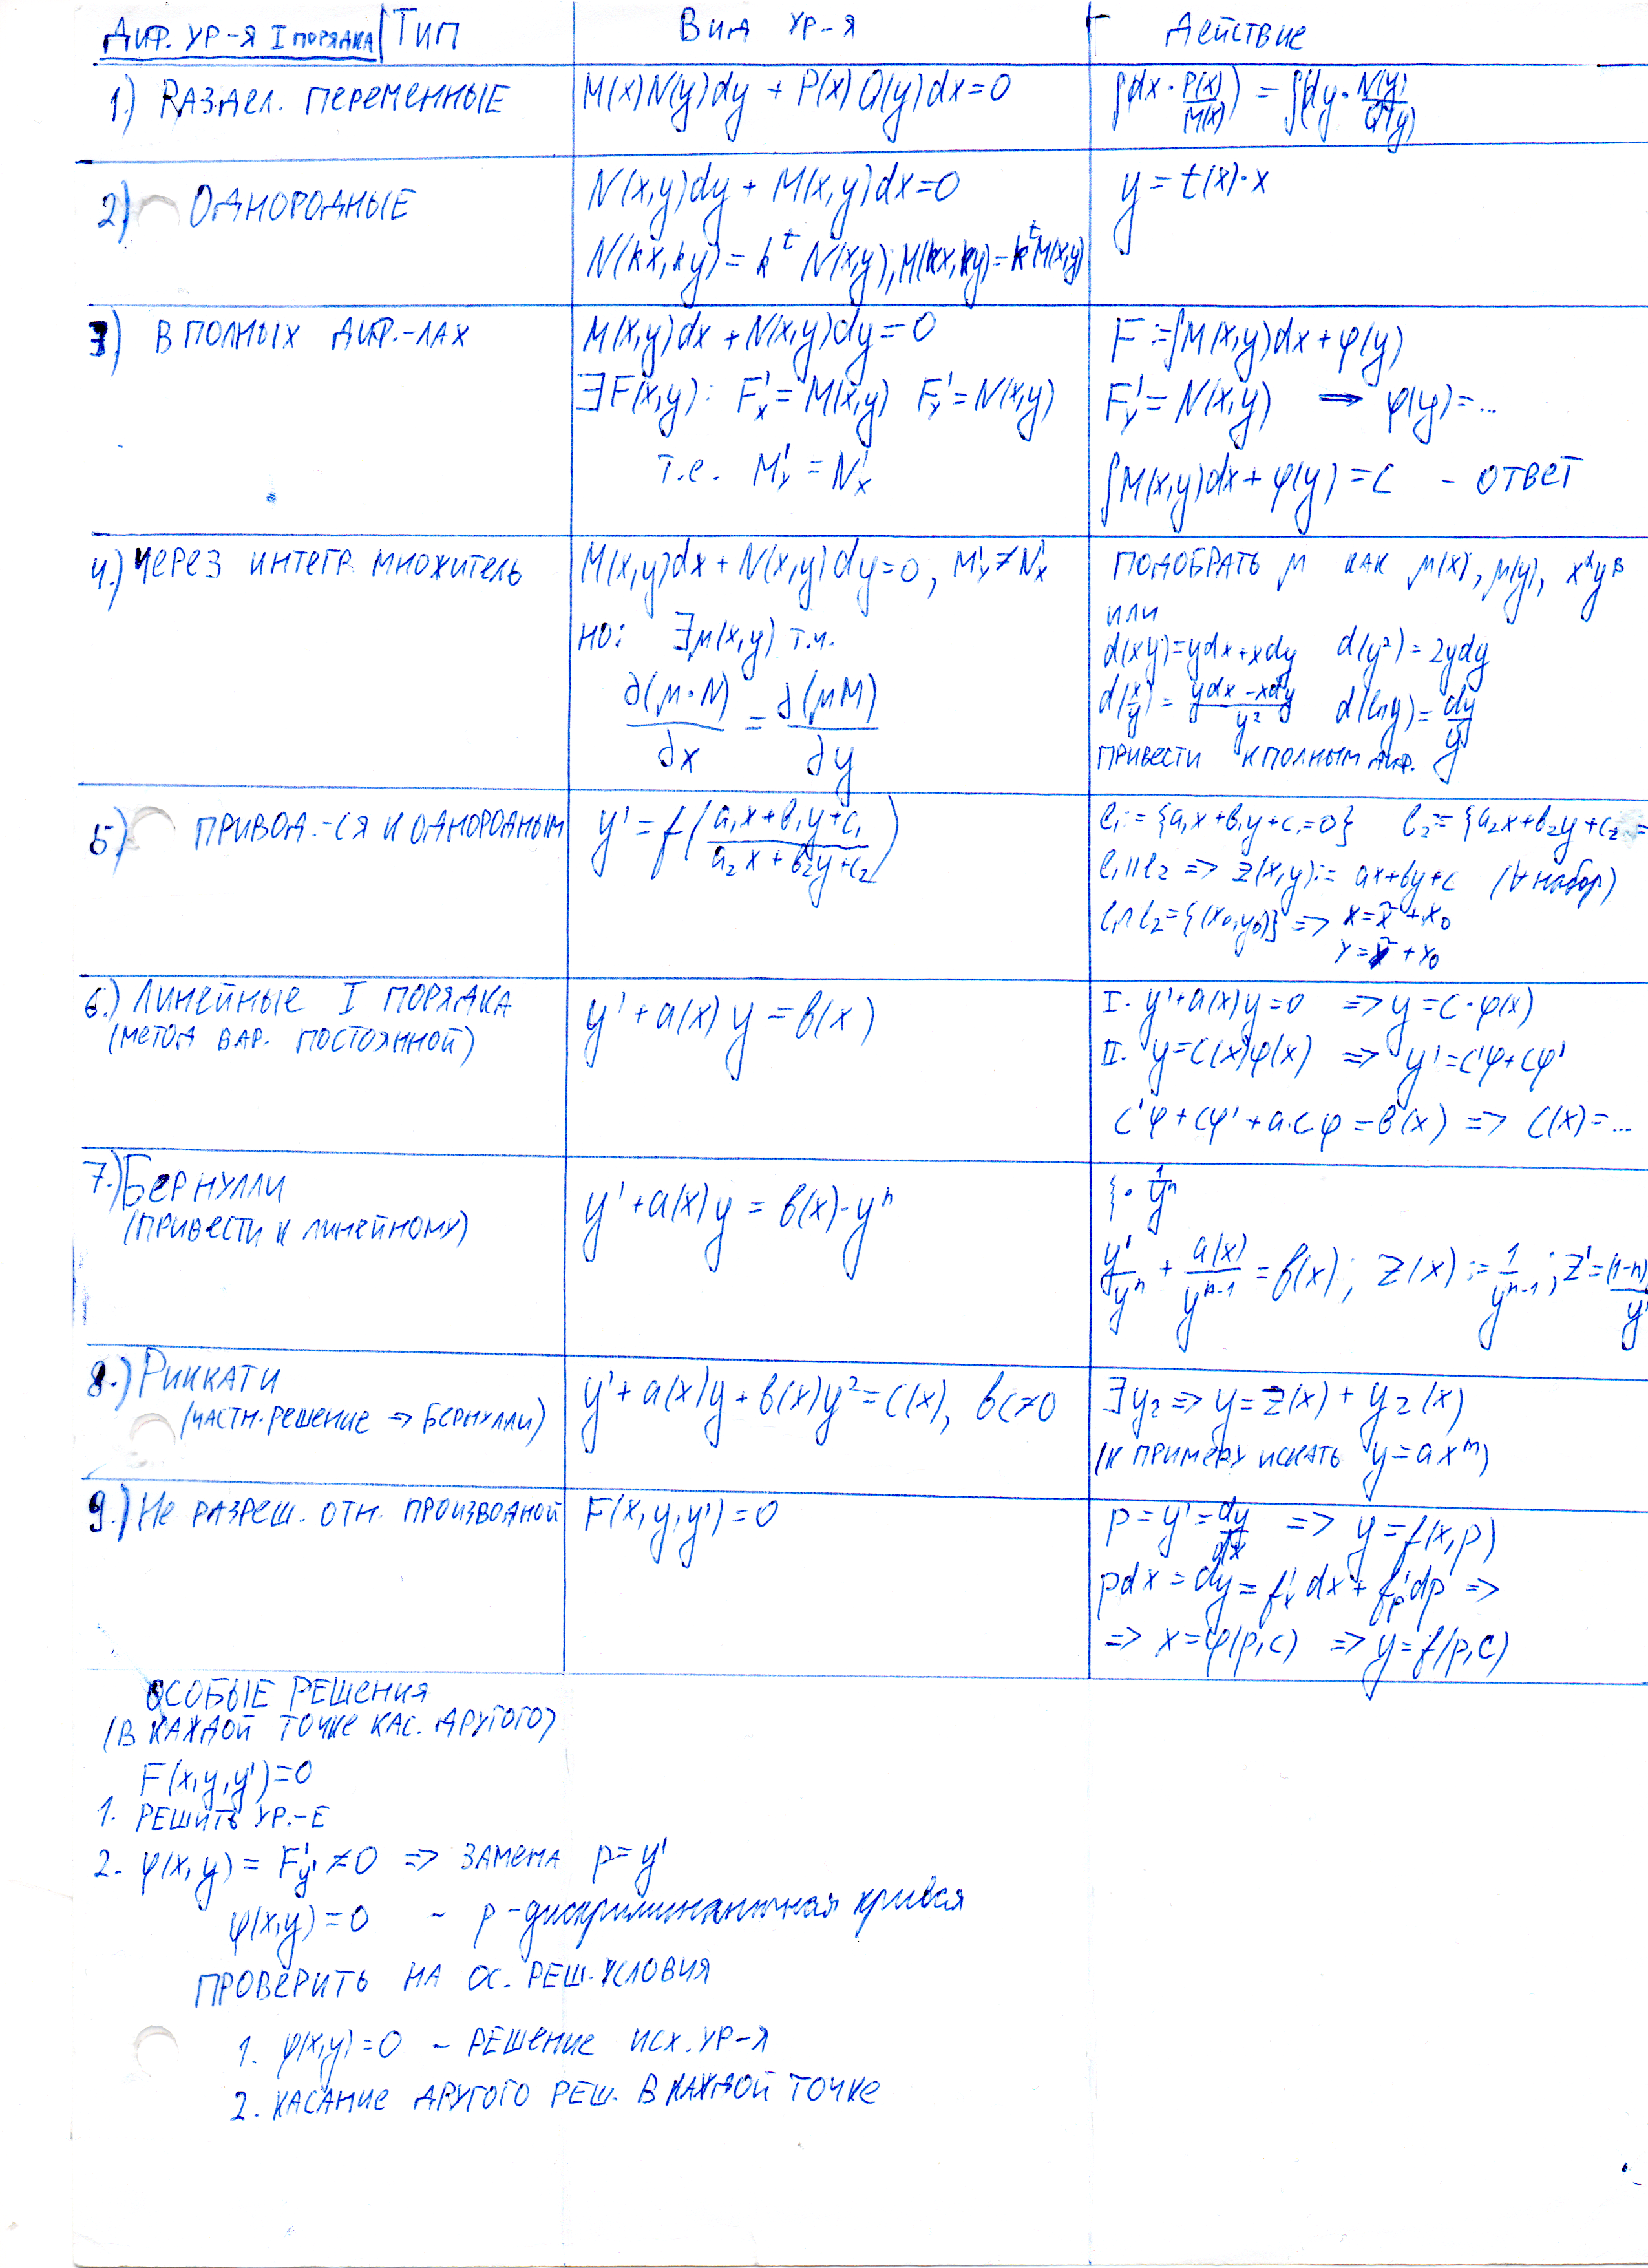 Диф. ур-я I порядка | Тип Вид ур-я Действие
1.) Раздел. переменные M(x)N(y)dy + P(x)Q(y)dx=0 ∫(dx·P(x)/M(x)) = ∫(dy·N(y)/Q(y))
2) Однородные N(x,y)dy + M(x,y)dx=0 y = t(x)·x
N(kx,ky) = k^t N(x,y); M(kx,ky)=k^t M(x,y)
3) в полных диф.-лах M(x,y)dx + N(x,y)dy=0 F:=∫M(x,y)dx+φ(y)
∃F(x,y): F'x = M(x,y) F'y = N(x,y) F'y = N(x,y) → φ(y)=...
т.е. M'y = N'x ∫M(x,y)dx+φ(y)=C - ответ
4.) через интегр. множитель M(x,y)dx+N(x,y)dy=0, M'y≠N'x подобрать μ как μ(x), μ(y), x^αy^β
или
но: ∃μ(x,y) т.ч. d(xy)=ydx+xdy d(y²)=2ydy
∂(μ·N)/∂x = ∂(μM)/∂y d(x/y) = (ydx-xdy)/y² d(ln y)=dy/y
привести к полным диф.
5) привод.-ся к однородным y' = f((a₁x+b₁y+c₁)/(a₂x+b₂y+c₂)) l₁:={a₁x+b₁y+c₁=0} l₂:={a₂x+b₂y+c₂=
l₁||l₂ => z(x,y):= ax+by+c (∀ набор)
l₁∩l₂={(x₀,y₀)} => x=x̃+x₀
6.) Линейные I порядка y'+a(x)y=b(x) I. y'+a(x)y=0 => y=C·φ(x)
(метод вар. постоянной) II. y=C(x)φ(x) => y'=C'φ+Cφ'
C'φ+Cφ'+a·Cφ=b(x) => C(x)=...
7.) Бернулли y'+a(x)y=b(x)·yⁿ {· 1/yⁿ
(привести к линейному) y'/yⁿ + a(x)/yⁿ⁻¹ = b(x); z(x):=1/yⁿ⁻¹; z'=(1-n)
8.) Риккати y'+a(x)y+b(x)y²=c(x), bc≠0 ∃y₂ => y=z(x)+y₂(x)
(частн. решение => Бернулли) (к примеру искать y=axᵐ)
9.) Не разреш. отн. производной F(x,y,y')=0 p=y'=dy/dx => y=f(x,p)
pdx=dy=f'x dx+f'p dp =>
=> x=φ(p,c) => y=f(p,c)
Особые решения
(в каждой точке кас. другого)
F(x,y,y')=0
1. Решить ур.-е
2. φ(x,y)=F'y'≠0 => замена p=y'
φ(x,y)=0 - p-дискриминантная кривая
Проверить на ос. реш. условия
1. φ(x,y)=0 - решение исх. ур-я
2. касание другого реш. в каждой точке